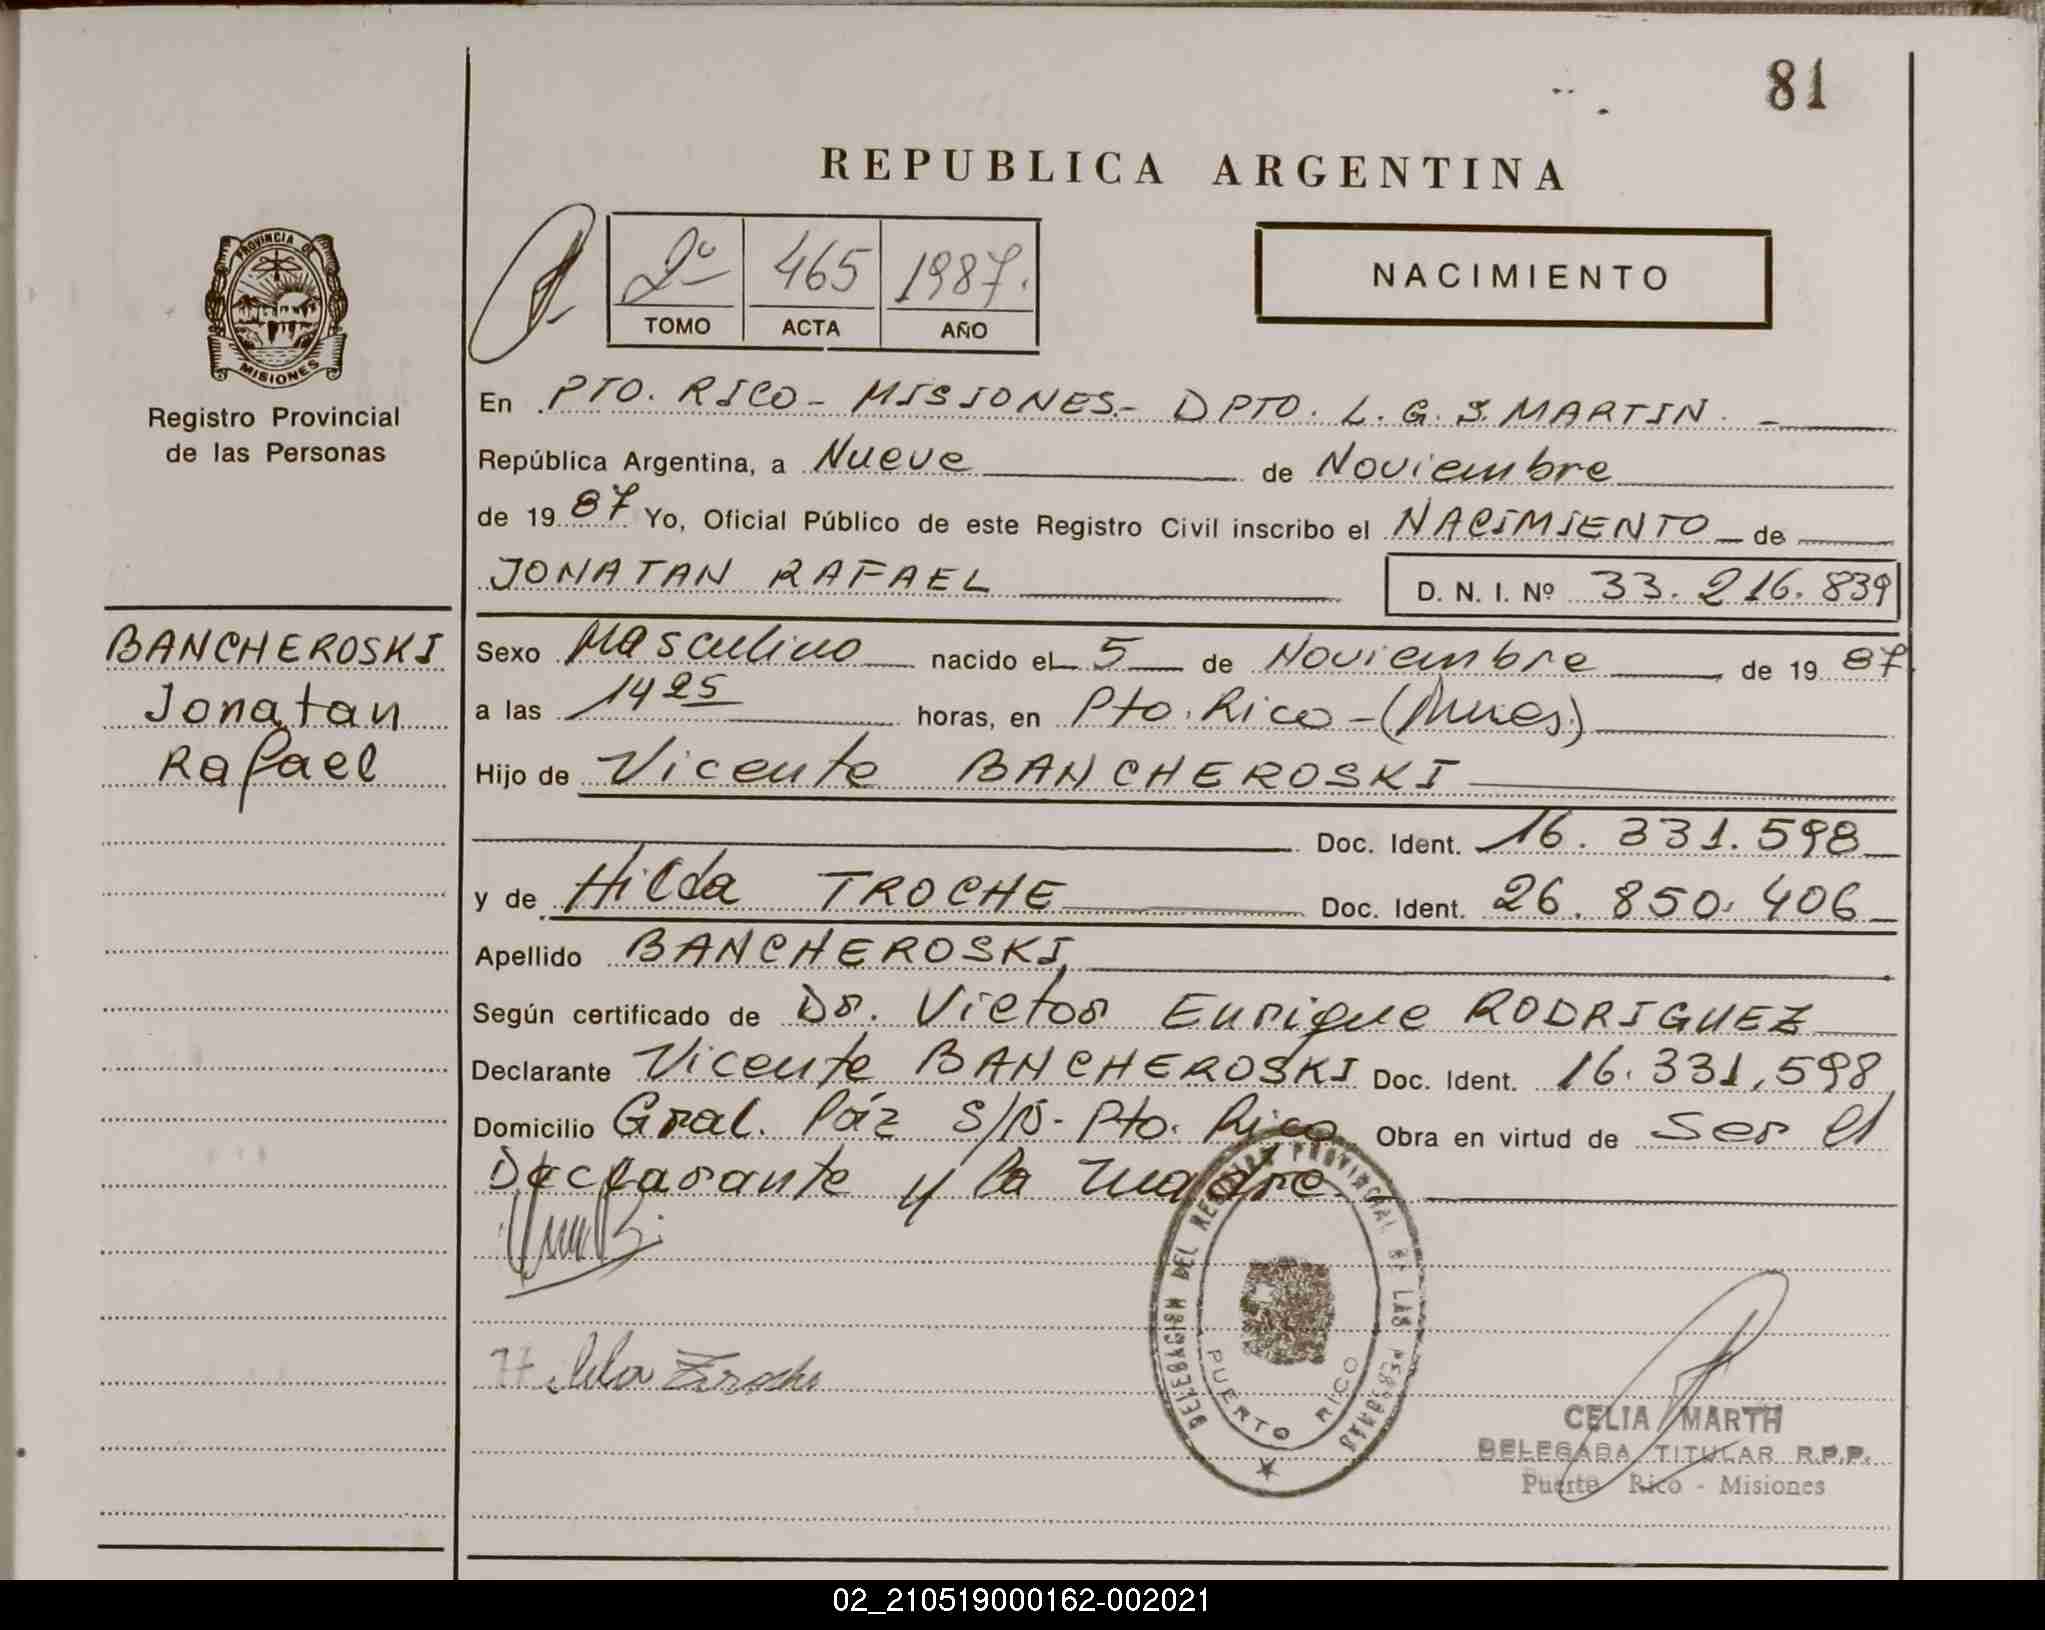 81
REPUBLICA ARGENTINA
PROVINCIA DE
MISIONES
Registro Provincial
de las Personas
2º 465 1987.
TOMO ACTA AÑO
NACIMIENTO
En PTO. RICO - MISIONES - DPTO. L. G. S. MARTIN. -
República Argentina, a Nueve de Noviembre
de 1987 Yo, Oficial Público de este Registro Civil inscribo el NACIMIENTO de
JONATAN RAFAEL D. N. I. Nº 33.216.839
BANCHEROSKI
Jonatan
Rafael
Sexo Masculino nacido el 5 de Noviembre de 1987
a las 1425 horas, en Pto. Rico - (Mnes.)
Hijo de Vicente BANCHEROSKI
Doc. Ident. 16.331.598
y de Hilda TROCHE Doc. Ident. 26.850.406
Apellido BANCHEROSKI
Según certificado de Dr. Victor Enrique RODRIGUEZ
Declarante Vicente BANCHEROSKI Doc. Ident. 16.331.598
Domicilio Gral. Páz S/N - Pto. Rico Obra en virtud de Ser el
Declarante y la madre.
DELEGACION DEL REGISTRO PROVINCIAL DE LAS PERSONAS
PUERTO RICO
Hilda Troche
CELIA MARTH
DELEGADA TITULAR R.P.P.
Puerto Rico - Misiones
02_210519000162-002021